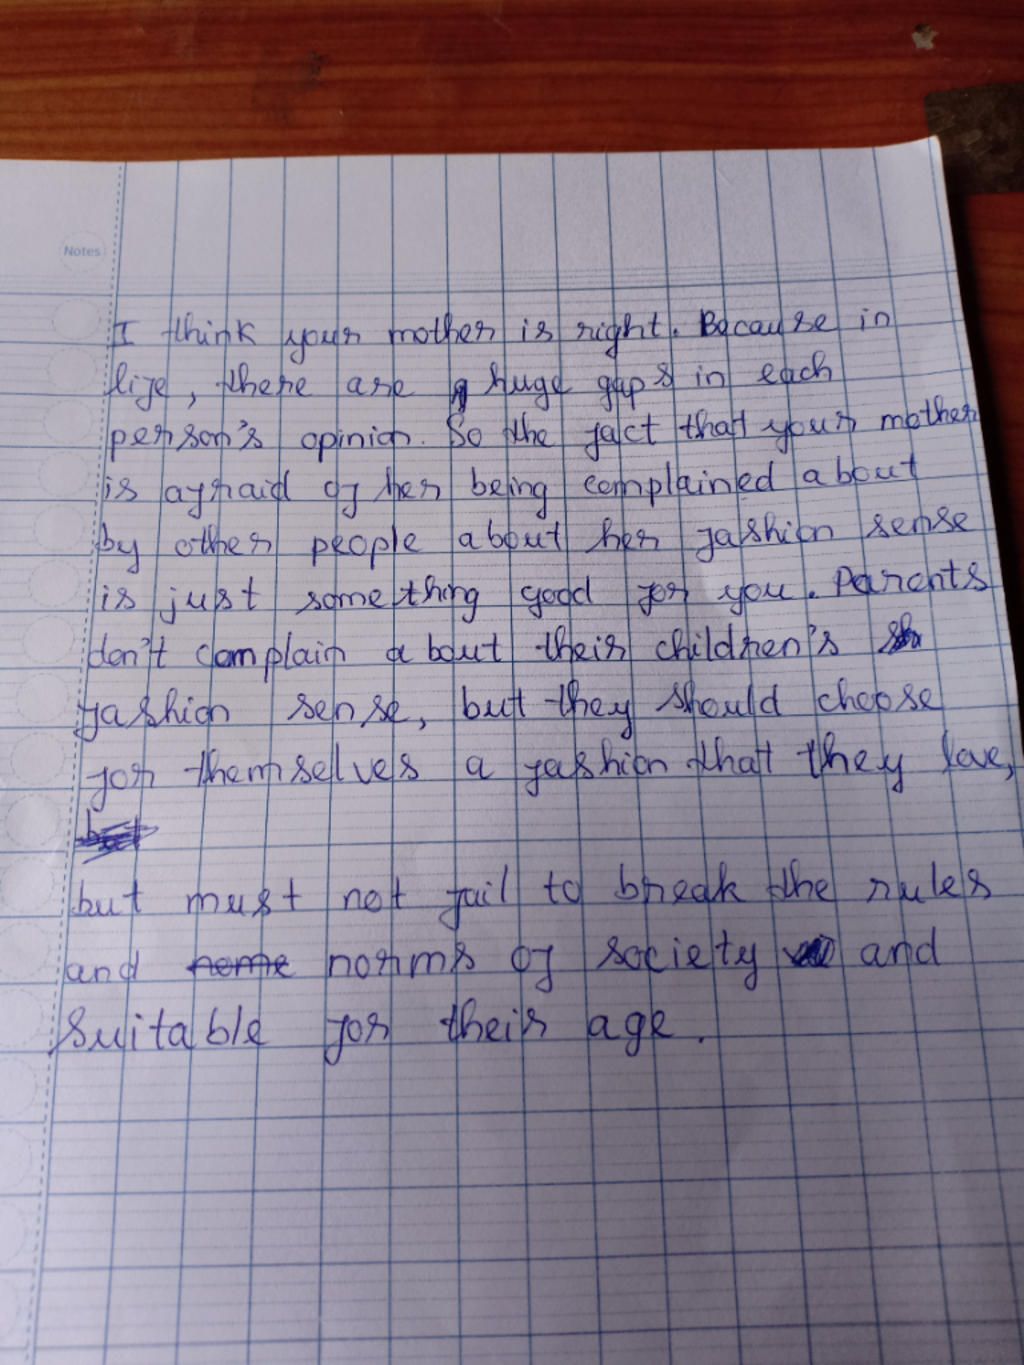 Notes
I think your mother is right. Bacause in
life, there are huge gaps in each
person's opinion. So the fact that your mother
is afraid of her being complained about
by other people about her fashion sense
is just something good for you. Parents
don't complain about their children's
fashion sense, but they should choose
for themselves a fashion that they love,
but must not fail to break the rules
and norms of society and
suitable for their age.